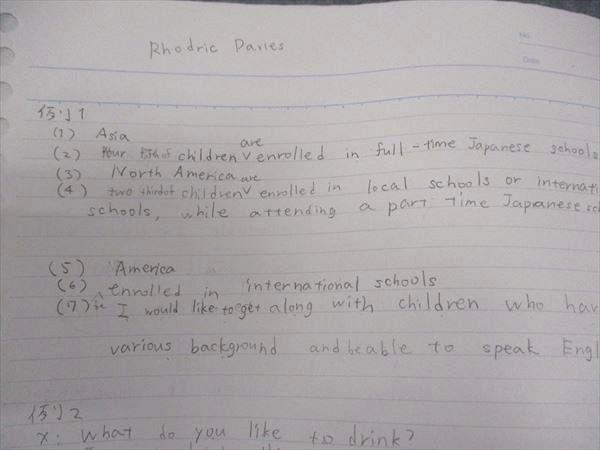 No.
Date
Rhodric Davies
例1
(1) Asia
(2) four fifth of children ∨are enrolled in full-time Japanese schools
(3) North America
(4) two third of children ∨are enrolled in local schools or internati
schools, while attending a part time Japanese sc
(5) America
(6) enrolled in international schools
(7) I would like to get along with children who hav
various background and be able to speak Engl
例2
X: What do you like to drink?